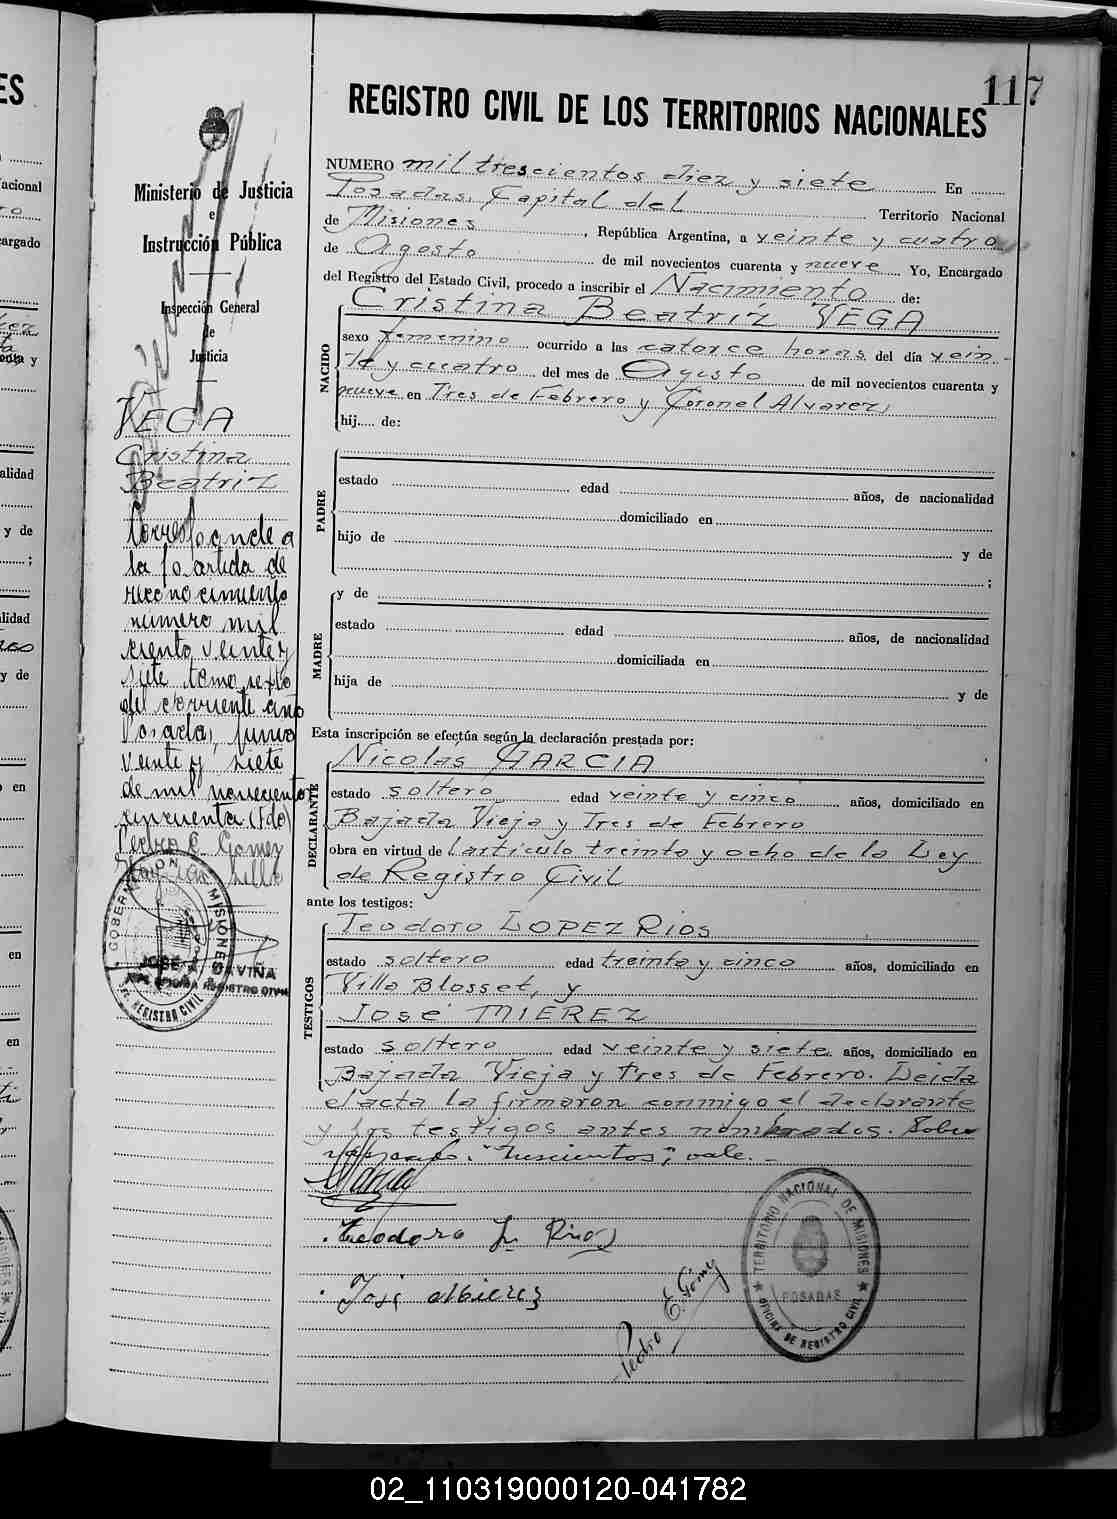 117
REGISTRO CIVIL DE LOS TERRITORIOS NACIONALES
Ministerio de Justicia
e
Instrucción Pública
Inspección General
de
Justicia
VEGA
Cristina
Beatriz
Corresponde a
la partida de
reconocimiento
número mil
ciento veinte y
siete tomo sexto
del corriente año
Posadas, junio
veinte y siete
de mil novecientos
cincuenta (Fdo)
Pedro E. Gomez
GOBERNACION MISIONES
JOSE GAVIÑA
REGISTRO CIVIL
NUMERO mil trescientos diez y siete En
Posadas, Capital del Territorio Nacional
de Misiones, República Argentina, a veinte y cuatro
de Agosto de mil novecientos cuarenta y nueve Yo, Encargado
del Registro del Estado Civil, procedo a inscribir el Nacimiento de:
NACIDO
Cristina Beatriz VEGA
sexo femenino ocurrido a las catorce horas del día vein-
te y cuatro del mes de Agosto de mil novecientos cuarenta y
nueve en Tres de Febrero y Coronel Alvarez
hij..... de:
PADRE
estado edad años, de nacionalidad
domiciliado en
hijo de y de
;
MADRE
y de
estado edad años, de nacionalidad
domiciliada en
hija de y de
Esta inscripción se efectúa según la declaración prestada por:
DECLARANTE
Nicolás GARCIA
estado soltero edad veinte y cinco años, domiciliado en
Bajada Vieja y Tres de Febrero
obra en virtud de l'artículo treinta y ocho de la Ley
de Registro Civil
ante los testigos:
TESTIGOS
Teodoro LOPEZ RIOS
estado soltero edad treinta y cinco años, domiciliado en
Villa Blosset, y
José MIEREZ
estado soltero edad veinte y siete años, domiciliado en
Bajada Vieja y tres de Febrero. Leida
el acta la firmaron conmigo el declarante
y los testigos antes nombrados. Sobre
raspado: "trescientos"; vale.-
Garcia
Teodoro L. Rios
José Mierez
Pedro E. Gomez
TERRITORIO NACIONAL DE MISIONES
POSADAS
OFICINA DE REGISTRO CIVIL
02_110319000120-041782